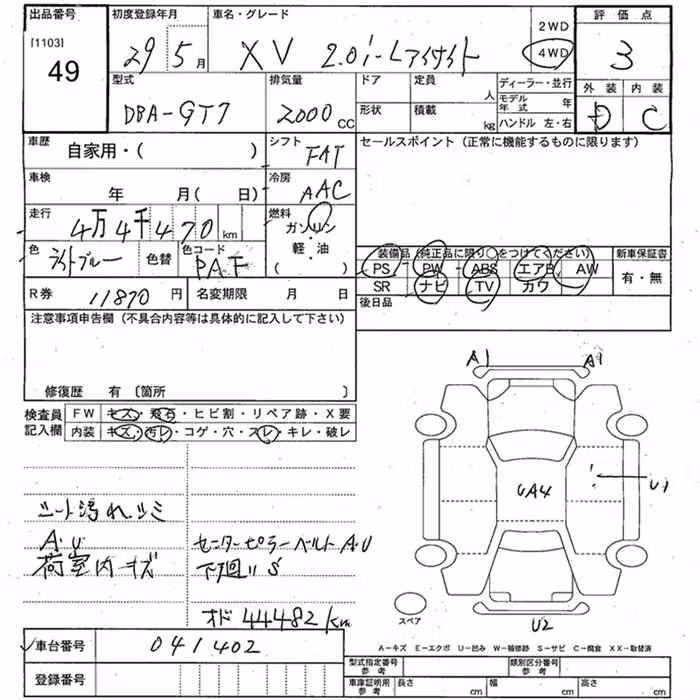 出品番号 初度登録年月 車名・グレード 2WD 評価点
[1103] 49 29 5月 XV 2.0i-Lアイサイト 4WD 3
型式 排気量 ドア 定員 人 ディーラー・並行 外装 内装
DBA-GT7 2000cc 形状 積載 kg モデル年式 年 D C
ハンドル 左・右
車歴 自家用・( ) シフト FAT セールスポイント(正常に機能するものに限ります)
車検 年 月( 日) 冷房 AAC
走行 4万4千470km 燃料 ガソリン
色 ライトブルー 色替 色コード PAF 軽・油 ( )
装備品(純正品に限り○をつけてください) 新車保証書
PS PW ABS エアB AW 有・無
R券 11870円 名変期限 月 日 SR ナビ TV カワ
後日品
注意事項申告欄(不具合内容等は具体的に記入して下さい)
修復歴 有 〔箇所 〕
検査員 FW キズ・飛石・ヒビ割・リペア跡・X要
記入欄 内装 キズ・汚レ・コゲ・穴・スレ・キレ・破レ
A1 A1
UA4 U1
シート汚れシミ
A・U センターピラーベルトA・U
荷室内キズ 下廻りS
オド 44482km
スペア U2
車台番号 041402
A-キズ E-エクボ U-凹み W-補修跡 S-サビ C-腐食 XX-取替済
登録番号
型式指定番号 参考 類別区分番号 参考
車庫証明用 参考 長さ cm 幅 cm 高さ cm